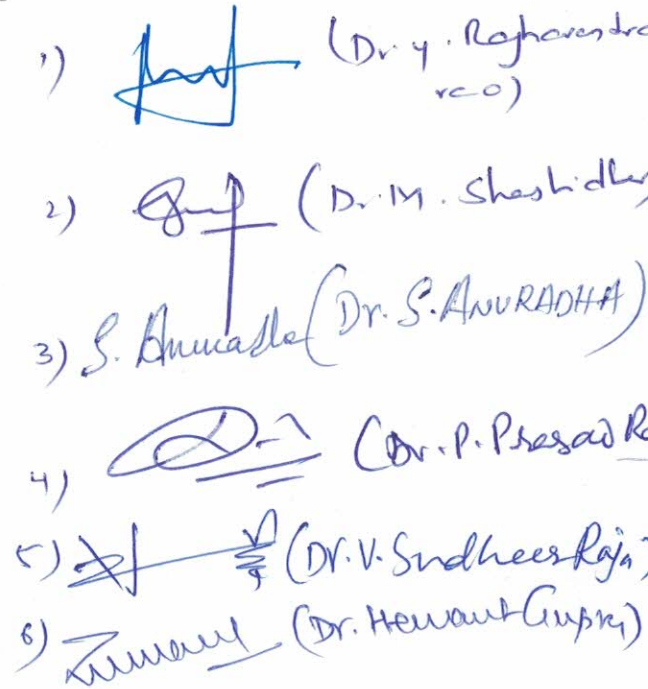 1) (Dr. y. Raghavendra
rao)
2) (Dr. M. Shashidher
3) S. Anuradha (Dr. S. ANURADHA)
4) (Dr. P. Prasad
5) (Dr. V. Sudheer Raja)
6) (Dr. Hemant Gupta)